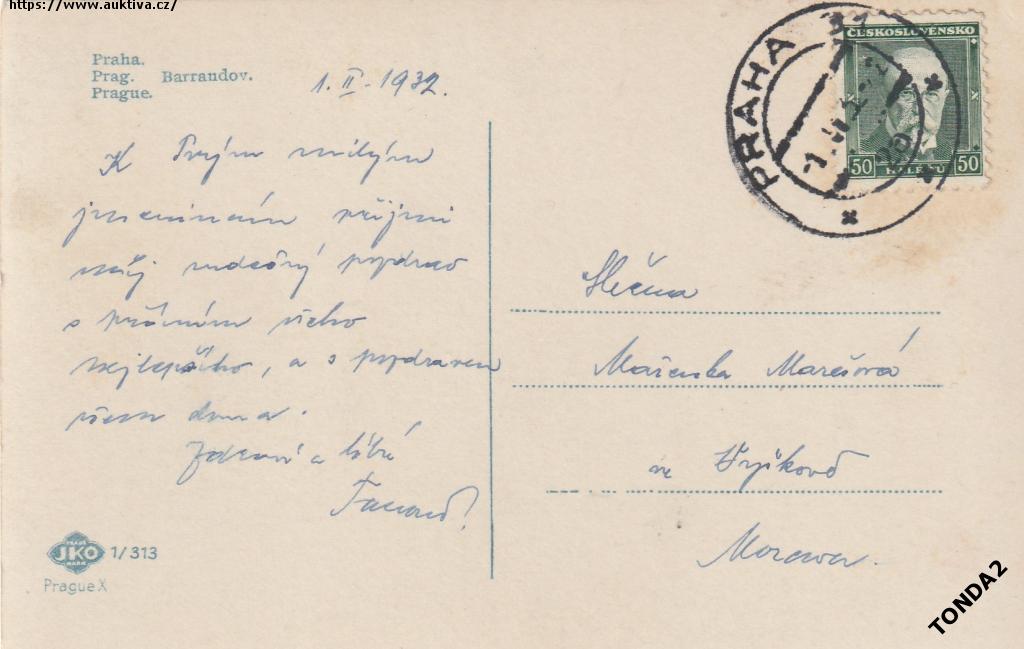 https://www.auktiva.cz/
Praha.
Prag. Barrandov.
Prague.
1. II. 1932.
K Tvým milým
jmeninám přijmi
můj srdečný pozdrav
s přáním všeho
nejlepšího, a s pozdravem
všem doma.
a líbá
PRAHA 31
ČESKOSLOVENSKO
50 HALÉŘŮ 50
Slečna
Mařenka Marešová
ve Vyškově
Morava.
PRAGUE
JKO
MARK
1/313
Prague X
TONDA2